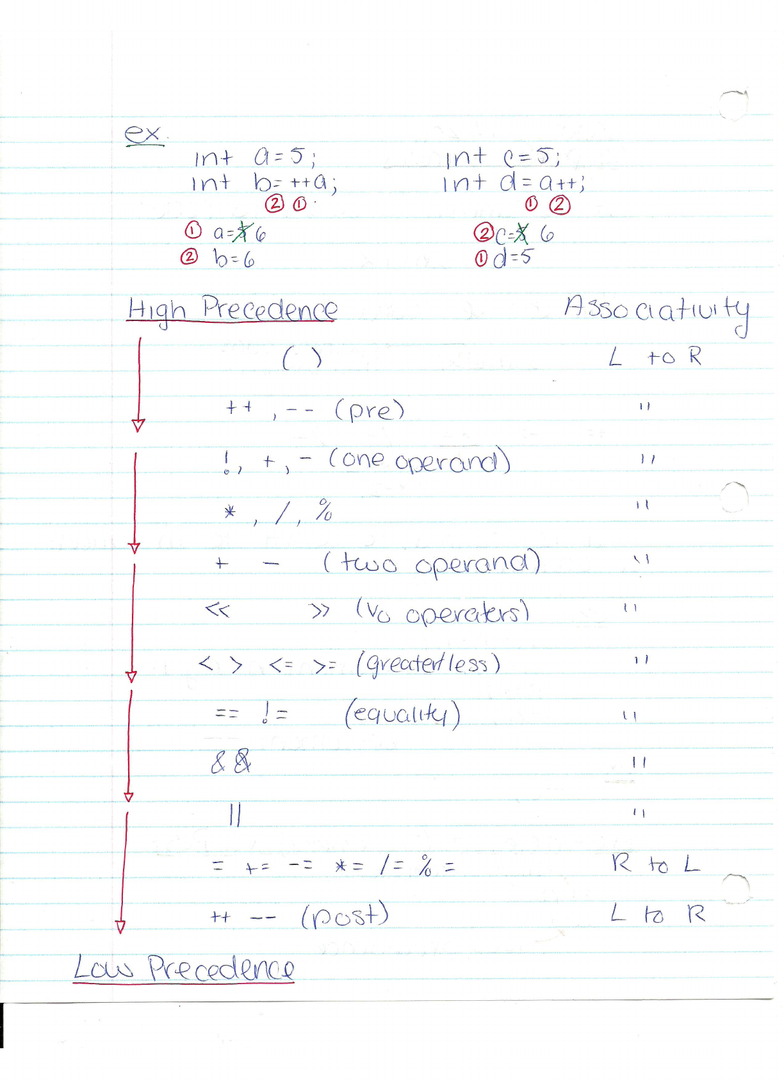 ex.
int a=5; int c=5;
int b= ++a; int d= a++;
② ① ① ②
① a=5 6 ② c=5 6
② b=6 ① d=5
High Precedence Associativity
( ) L to R
++ , -- (pre) "
!, +, - (one operand) "
* , / , % "
+ - (two operand) "
<< >> (I/O operaters) "
< > <= >= (greater/less) "
== != (equality) "
&& "
|| "
= += -= *= /= %= R to L
++ -- (post) L to R
Low Precedence